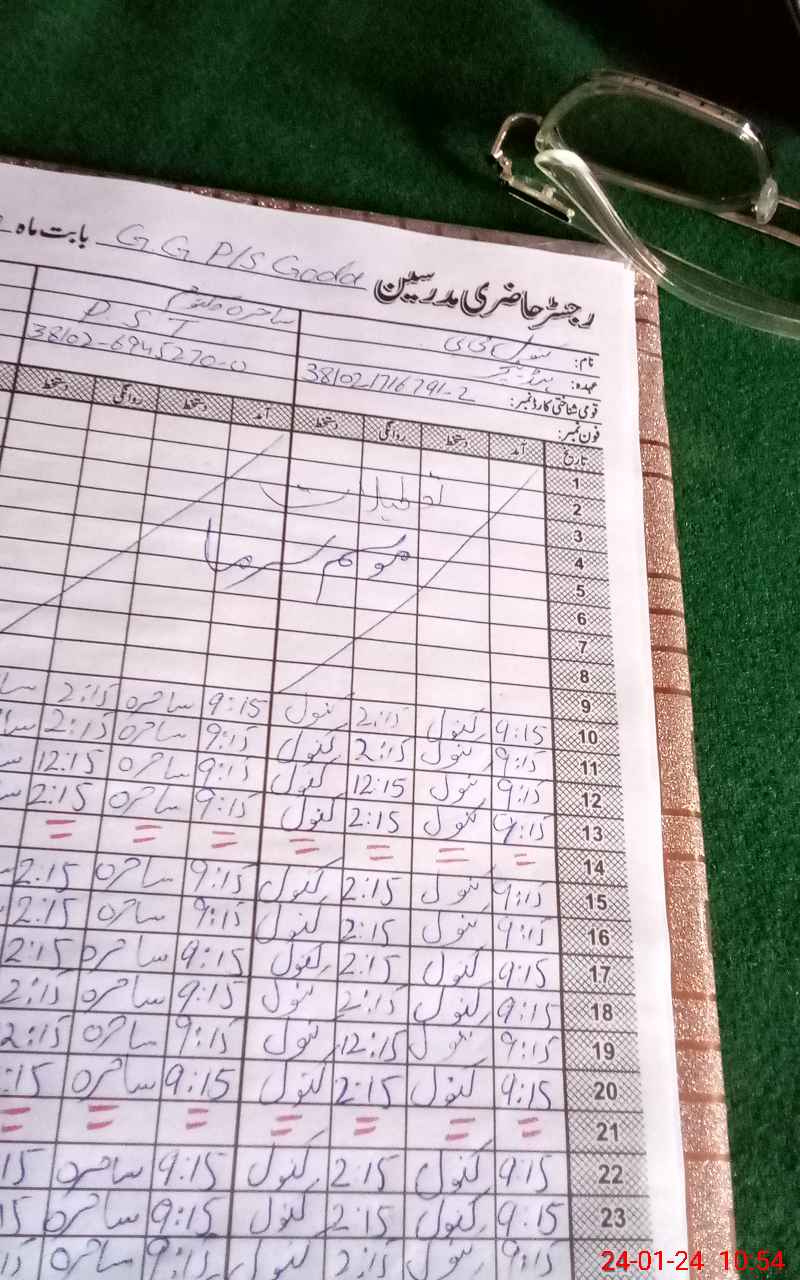 رجسٹر حاضری مدرسین GGP/S Goda بابت ماہ
نام: کنول بی بی ساحرہ کلثوم
عہدہ: ہیڈ ٹیچر PST
قومی شناختی کارڈ نمبر: 381021716791-2 38102-6945270-0
فون نمبر:
تاریخ آمد دستخط روانگی دستخط آمد دستخط روانگی دستخط
1
2 تعطیلات
3
4 موسم سرما
5
6
7
8
9
10 9:15 کنول 2:15 کنول 9:15 ساحرہ 2:15
11 9:15 کنول 2:15 کنول 9:15 ساحرہ 2:15
12 9:15 کنول 12:15 کنول 9:15 ساحرہ 12:15
13 9:15 کنول 2:15 کنول 9:15 ساحرہ 2:15
14 = = = = = = =
15 9:15 کنول 2:15 کنول 9:15 ساحرہ 2:15
16 9:15 کنول 2:15 کنول 9:15 ساحرہ 2:15
17 9:15 کنول 2:15 کنول 9:15 ساحرہ 2:15
18 9:15 کنول 2:15 کنول 9:15 ساحرہ 2:15
19 9:15 کنول 12:15 کنول 9:15 ساحرہ 2:15
20 9:15 کنول 2:15 کنول 9:15 ساحرہ :15
21 = = = = = = =
22 9:15 کنول 2:15 کنول 9:15 ساحرہ 15
23 9:15 کنول 2:15 کنول 9:15 ساحرہ 15
9:15 کنول 2:15 کنول 9:15 ساحرہ
24-01-24 10:54